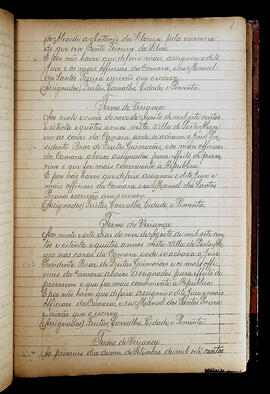 do Alcaide Antonio da Silveira pela ausencia
de que era Bento Pereira da Silva.
E por não haver que deferir mais assignou o dito
Juiz e os mais officiaes da Camara, eu Manoel
dos Santos Pereira escrivão que escrevy
(Assignados) Freitas, Carvalho, Cidade, e Pimenta.
Termo de Vereança
Aos vinte e do mez de Agosto de mil sete centos
e oitenta e quatro annos nesta Villa de Porto Alegre
em as casas da Camara onde se achava o Juiz Pre-
sidente Braz de Freitas Guimarães, e os mais officiaes
da Camara abaixo assignados, para effeito de prove-
rem o que for mais conveniente á Republica.
E por não haver que deferir assignou o dito Juiz e
mais officiaes da Camara, e eu Manoel dos Santos
Pereira escrivão que o escrevy
(Assignados) Freitas, Carvalho, Cidade, e Pimenta.
Termo de Vereança
Aos vinte dias do mez de Agosto de mil sete cen-
tos e oitenta e quatro annos nesta Villa de Porto Ale-
gre nas casas da Camara onde se achava o Juiz
Presidente Braz de Freitas Guimarães e os mais offi-
ciaes da Camara abaixo assignados para effeito de
proverem o que for mais conveniente á Republica
E por não haver que deferir assignou o dito Juiz e mais
officiaes da Camara, e eu Manoel dos Santos Pereira
escrivão que o escrevy
(Assignados) Freitas, Carvalho, Cidade, e Pimenta.
Termo de Vereança
Ao primeiro dia do mez de Setembro de mil sete centos